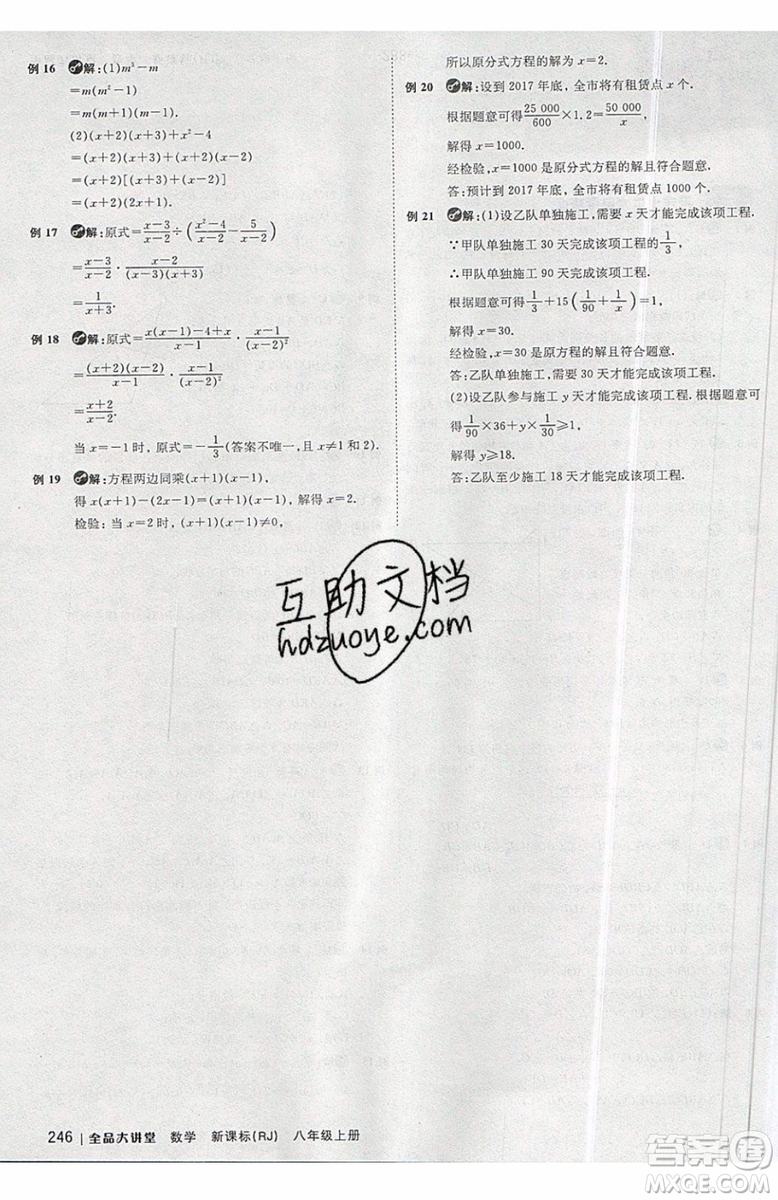 例 16 解：(1)m³－m
=m(m²－1)
=m(m+1)(m－1).
(2)(x+2)(x+3)+x²－4
=(x+2)(x+3)+(x+2)(x－2)
=(x+2)[(x+3)+(x－2)]
=(x+2)(2x+1).
例 17 解：原式=\frac{x-3}{x-2}÷(\frac{x²-4}{x-2}－\frac{5}{x-2})
=\frac{x-3}{x-2}·\frac{x-2}{(x-3)(x+3)}
=\frac{1}{x+3}.
例 18 解：原式=\frac{x(x-1)-4+x}{x-1}·\frac{x-1}{(x-2)²}
=\frac{(x+2)(x-2)}{x-1}·\frac{x-1}{(x-2)²}
=\frac{x+2}{x-2}.
当 x=－1 时，原式=－\frac{1}{3}(答案不唯一，且 x≠1 和 2).
例 19 解：方程两边同乘(x+1)(x－1)，
得 x(x+1)－(2x－1)=(x+1)(x－1)，解得 x=2.
检验：当 x=2 时，(x+1)(x－1)≠0，
所以原分式方程的解为 x=2.
例 20 解：设到 2017 年底，全市将有租赁点 x 个.
根据题意可得\frac{25 000}{600}×1.2=\frac{50 000}{x}，
解得 x=1000.
经检验，x=1000 是原分式方程的解且符合题意.
答：预计到 2017 年底，全市将有租赁点 1000 个.
例 21 解：(1)设乙队单独施工，需要 x 天才能完成该项工程.
∵甲队单独施工 30 天完成该项工程的\frac{1}{3}，
∴甲队单独施工 90 天完成该项工程.
根据题意可得\frac{1}{3}+15(\frac{1}{90}+\frac{1}{x})=1，
解得 x=30.
经检验，x=30 是原方程的解且符合题意.
答：乙队单独施工，需要 30 天才能完成该项工程.
(2)设乙队参与施工 y 天才能完成该项工程.根据题意可
得\frac{1}{90}×36+y×\frac{1}{30}≥1，
解得 y≥18.
答：乙队至少施工 18 天才能完成该项工程.
互助文档
hdzuoye.com
246 全品大讲堂 数学 新课标(RJ) 八年级上册
作业精灵